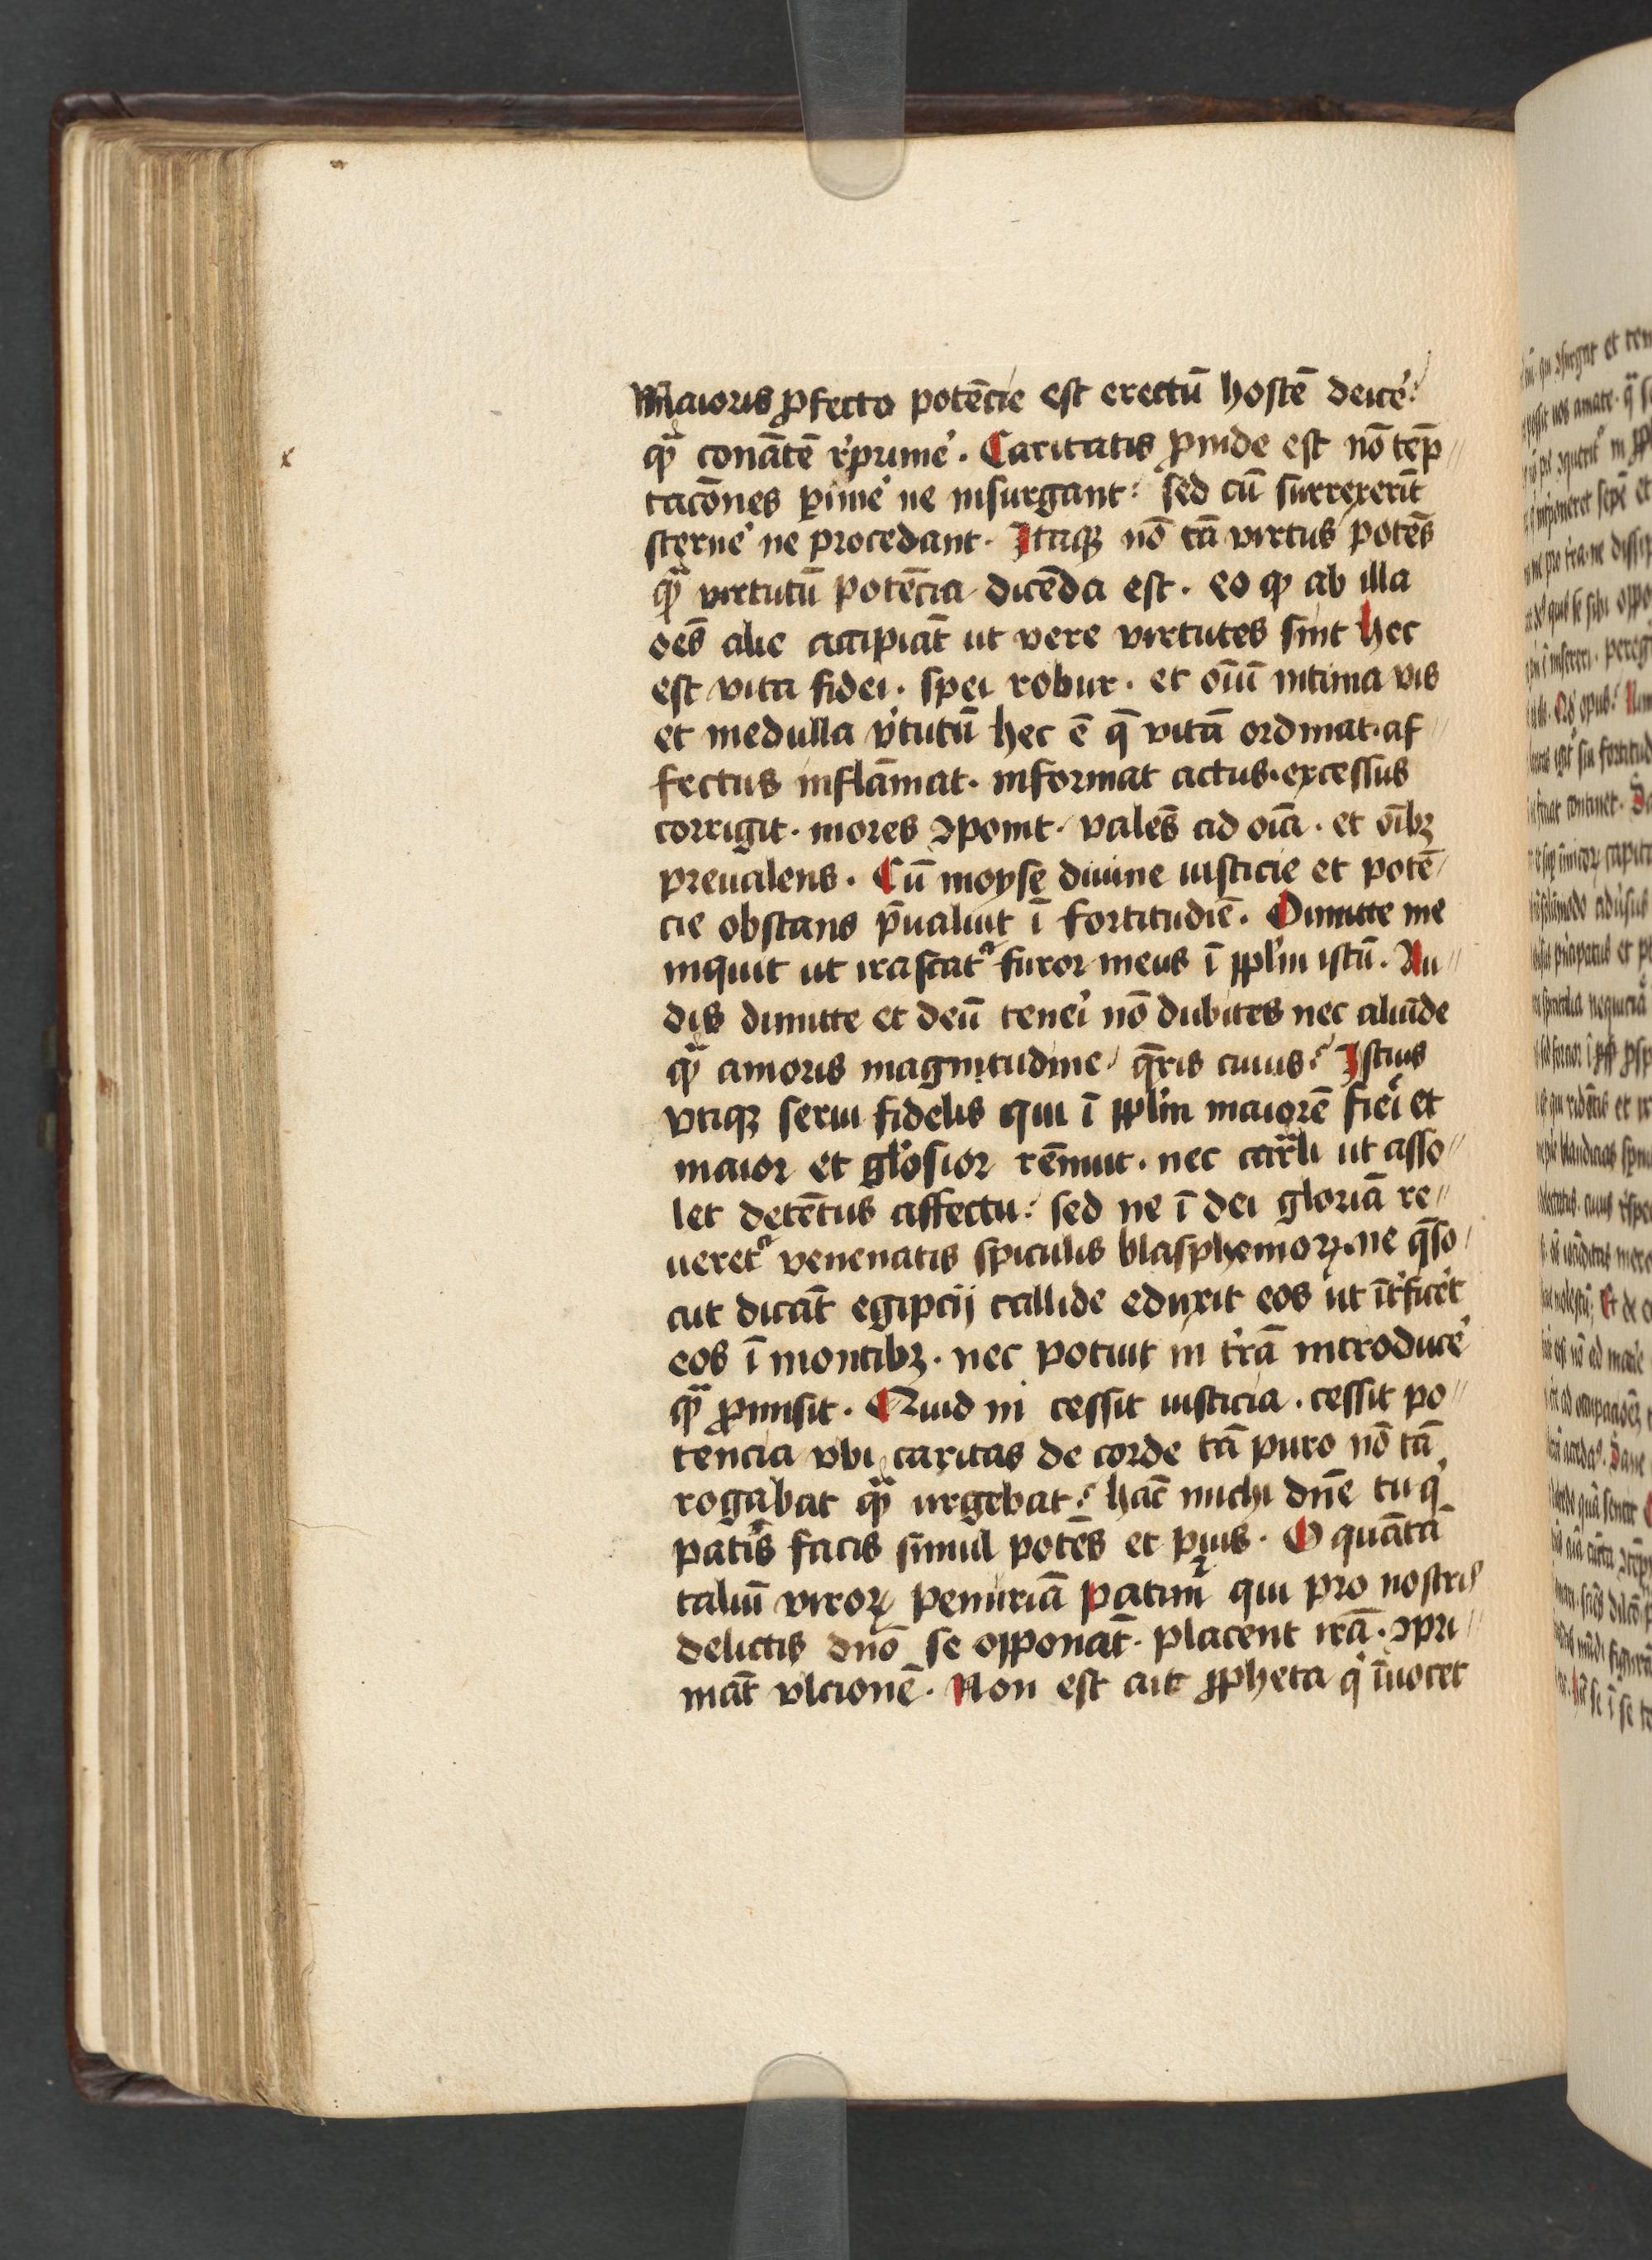 Maioris ꝓfecto potēcie est erectū hostē deicē:
qᷓ conātē rͥprimē. Caritatis ꝓinde est nō tēp̄
tacōnes p̲imē ne insurgant: sed cū surrexerīt
sternē ne procedant. Itaqꝫ nō tā virtus potēs
qᷓ virtutū potēcia dicēda est. eo ꝙ ab illa
oēs alie accipiāt ut vere virtutes sint hec
est vita fidei. spei robur. et oīū intima vis
et medulla vͥtutū hec ē q̄ vitā ordinat. af
fectus inflāmat. informat actus. excessus
corrigit. mores ↄponit. valēs ad oīa. et oībꝫ
preualens. Cū moyse diuine iusticie et potē
cie obstans p̄ualuit ī fortitudīe. Dimitte me
inquit ut irascatᷣ furor meus ī ppl̄m istū. Au
dis dimitte et deū tenēi nō dubites nec aliūde
qᷓ amoris magnitudine. q̄ris cuius? Istius
vtiqꝫ serui fidelis qui ī ppl̄m maiorē fiēi et
maior et gl̄osior rēnuit. nec carͣli ut asso
let detētus affectu: sed ne ī dei gloriā re
ueretᷣ venenatis spiculis blasphemoꝝ. ne q̄so
ait dicāt egipcij callide eduxit eos ut īt̄ficēt
eos ī montibꝫ. nec potuit in t̄rā introducē
qᷓ ꝓmisit. Quid ni cessit iusticia. cessit po
tencia vbi caritas de corde tā puro nō tā
rogabat qᷓ urgebat? hāc michi dn̄e tu qͥ
patīs facis simul potēs et pius. O quātā
taliū viroꝝ penuriā patimᷣ qui pro nostris
delictis dn̄o se opponāt. placent irā. ↄpri
māt vlcionē. Non est ait ꝓpheta qͥ īuocet